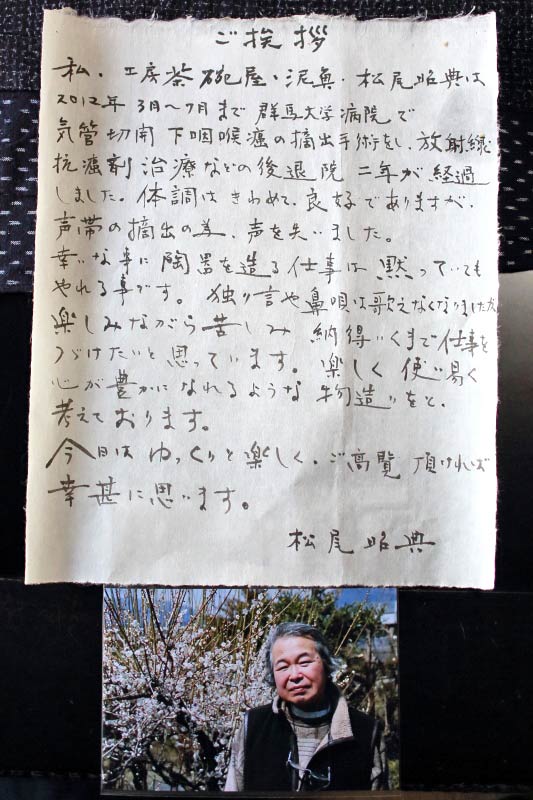 ご挨拶
私、工房茶碗屋・泥魚、松尾昭典は
2012年3月〜7月まで群馬大学病院で
気管切開下咽喉癌の摘出手術をし、放射線
抗癌剤治療などの後退院二年が経過
しました。体調はきわめて良好でありますが、
声帯の摘出の為、声を失いました。
幸いな事に陶器を造る仕事は黙っていても
やれる事です。独り言や鼻唄は歌えなくなりましたが
楽しみながら苦しみ納得いくまで仕事を
つづけたいと思っています。楽しく使い易く
心が豊かになれるような物造りをと、
考えております。
今日はゆっくりと楽しく、ご高覧頂ければ
幸甚に思います。
松尾昭典